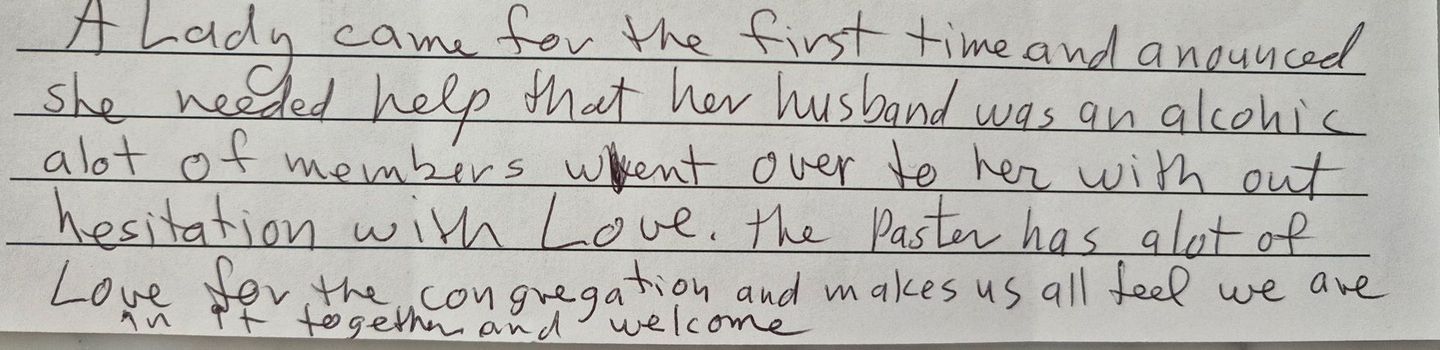 A Lady came for the first time and anounced
she needed help that her husband was an alcohic
alot of members went over to her with out
hesitation with Love. the Paster has alot of
Love for the congregation and makes us all feel we are
in it together and welcome